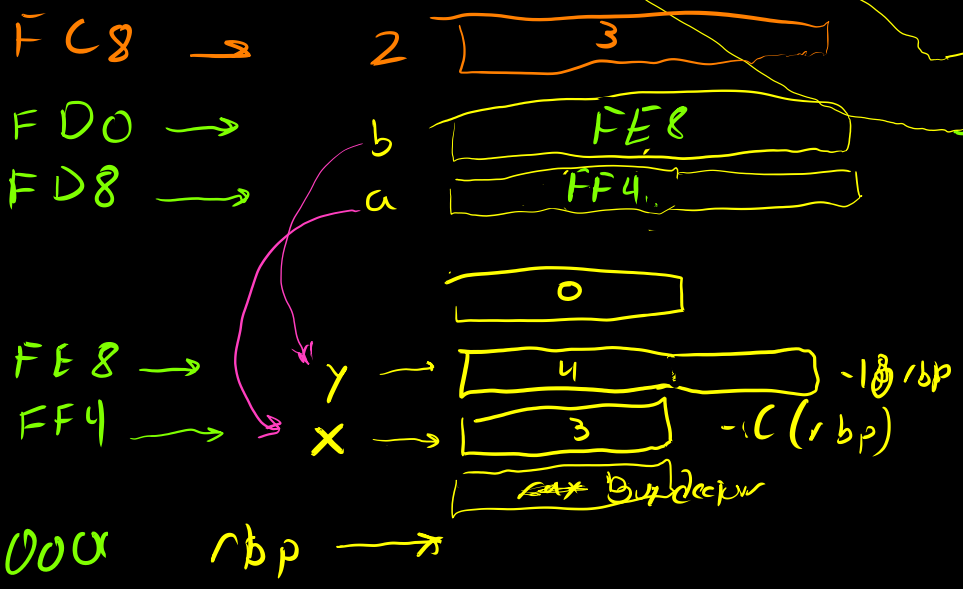 FC8 → 2 3
FD0 → b FE8
FD8 → a FF4
0
FE8 → y → 4
FF4 → x → 3 -C(rbp)
rbp →